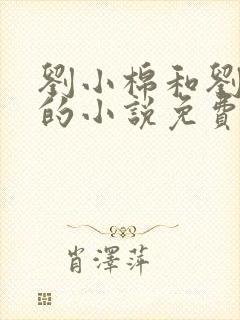 劉小棉和劉
的小說免費
肖澤萍